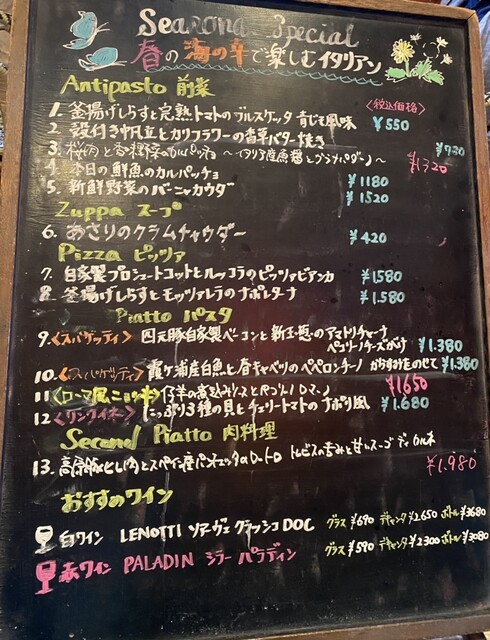 Seasonal Special
春の海の幸で楽しむイタリアン
Antipasto 前菜 〈税込価格〉
1. 釜揚げしらすと完熟トマトのブルスケッタ 青じそ風味 ¥550
2. 殻付き帆立とカリフラワーの香草バター焼き ¥730
3. 桜肉と のカルパッチョ 〜イタリア産魚醤と 〜 ¥1320
4. 本日の鮮魚のカルパッチョ ¥1180
5. 新鮮野菜のバーニャカウダ ¥1520
Zuppa スープ
6. あさりのクラムチャウダー ¥420
Pizza ピッツァ
7. 自家製プロシュートコットとルッコラのピッツァビアンカ ¥1580
8. 釜揚げしらすとモッツァレラのナポレターナ ¥1.580
Piatto パスタ
9. 〈スパゲッティ〉 四元豚自家製ベーコンと新玉葱のアマトリチャーナ
ペコリーノチーズがけ ¥1.380
10. 〈スパゲッティ〉 霞ヶ浦産白魚と春キャベツのペペロンチーノ からすみをのせて ¥1.380
11 〈ローマ風ニョッキ〉 仔羊の煮込みソース ¥1650
12 〈リングイネ〉 たっぷり3種の貝とチェリートマトのナポリ風 ¥1.680
Second Piatto 肉料理
13. スペイン産パンチェッタの ¥1.980
おすすめワイン
白ワイン LENOTTI ソアーヴェ クラッシコ DOC グラス ¥690 デキャンタ ¥2650 ボトル ¥3680
赤ワイン PALADIN シラー パラディン グラス ¥590 デキャンタ ¥2300 ボトル ¥3080